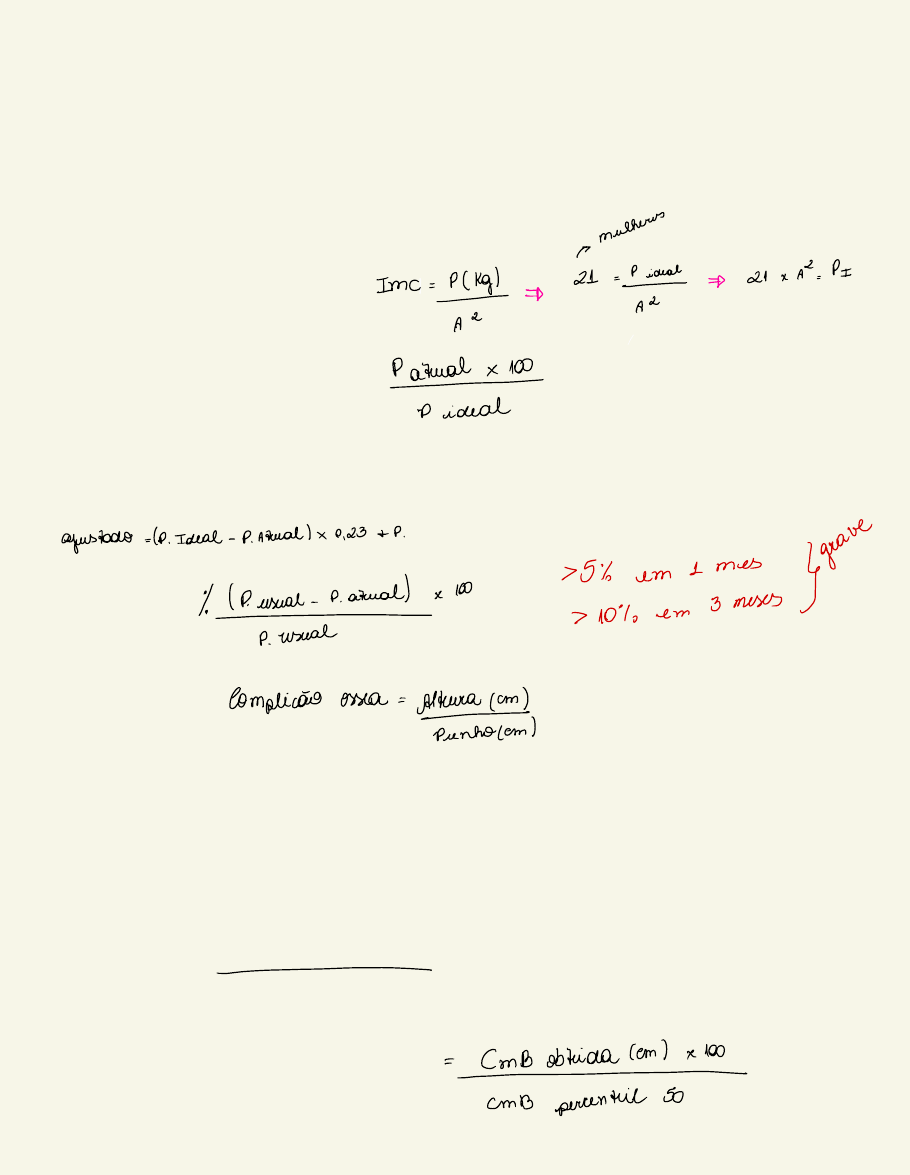 mulheres
Imc = P(Kg) / A² ⇒ 21 = P ideal / A² ⇒ 21 x A² = P_I
P atual x 100
P ideal
ajustado = (P. Ideal - P. Atual) x 0,23 + P.
% (P. usual - P. atual) x 100
P. usual
>5% em 1 mes
> 10% em 3 meses
grave
Complicão ossea = Altura (cm)
Punho (cm)
= CmB obtida (cm) x 100
cmB percentil 50